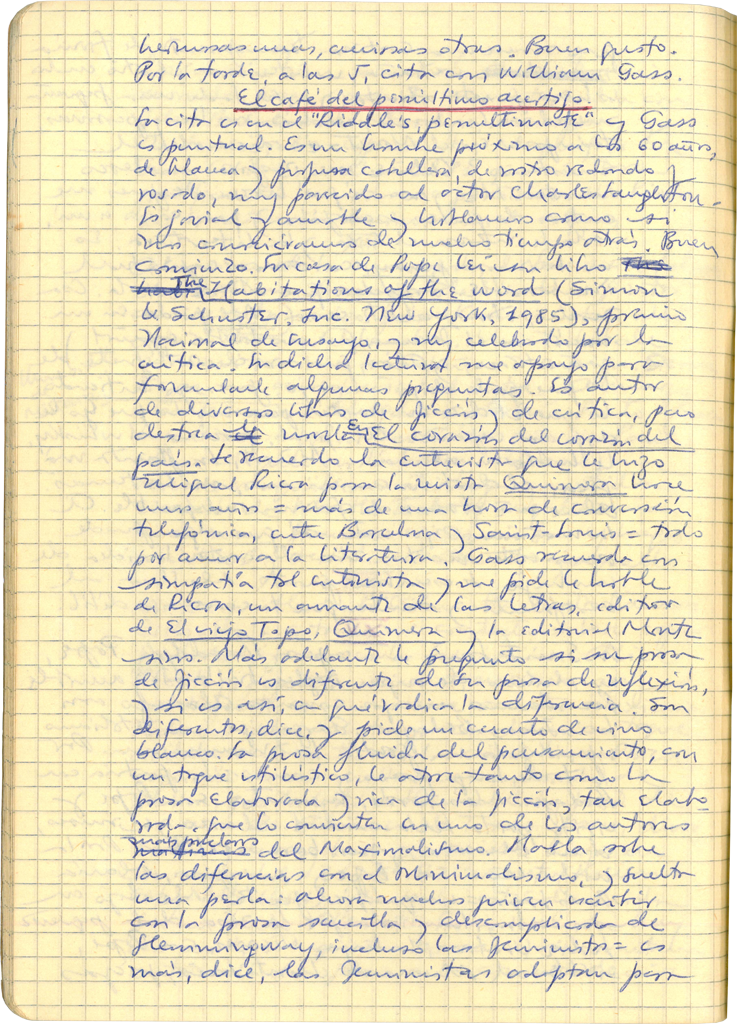 hermosas unas, curiosas otras. Buen gusto.
Por la tarde, a las 5, cita con William Gass.
El café del penúltimo acertijo.
La cita es en el "Riddle's, penultimate" y Gass
es puntual. Es un hombre próximo a los 60 años,
de blanca y profusa cabellera, de rostro redondo y
rosado, muy parecido al actor Charles Laughton.
Es jovial y amable y hablamos como si
nos conociéramos de mucho tiempo atrás. Buen
comienzo. En casa de Pope leí su libro The
The Habitations of the word (Simon
& Schuster, Inc. New York, 1985), premio
Nacional de Ensayo, y muy celebrado por la
crítica. En dicha lectura me apoyo para
formularle algunas preguntas. Es autor
de diversos libros de ficción y de crítica, pero
destaca la novela En El corazón del corazón del
país. Le recuerdo la entrevista que le hizo
Miguel Riera para la revista Quimera hace
unos años = más de una hora de conversación
telefónica, entre Barcelona y Saint-Louis = todo
por amor a la literatura. Gass recuerda con
simpatía tal entrevista y me pide le hable
de Riera, un amante de las letras, editor
de El viejo Topo, Quimera y la editorial Monte
sinos. Más adelante le pregunto si su prosa
de ficción es diferente de su prosa de reflexión,
y si es así, en qué radica la diferencia. Son
diferentes, dice, y pide un cuarto de vino
blanco. La prosa fluida del pensamiento, con
un toque estilístico, le atrae tanto como la
prosa elaborada y rica de la ficción, tan elabo-
rada, que lo convierten en uno de los autores
más preclaros
del Maximalismo. Habla sobre
las difencias con el Minimalismo, y suelta
una perla: ahora muchos quieren escribir
con la prosa sencilla y descomplicada de
Hemmingway, incluso las feministas = es
más, dice, las feministas adoptan para